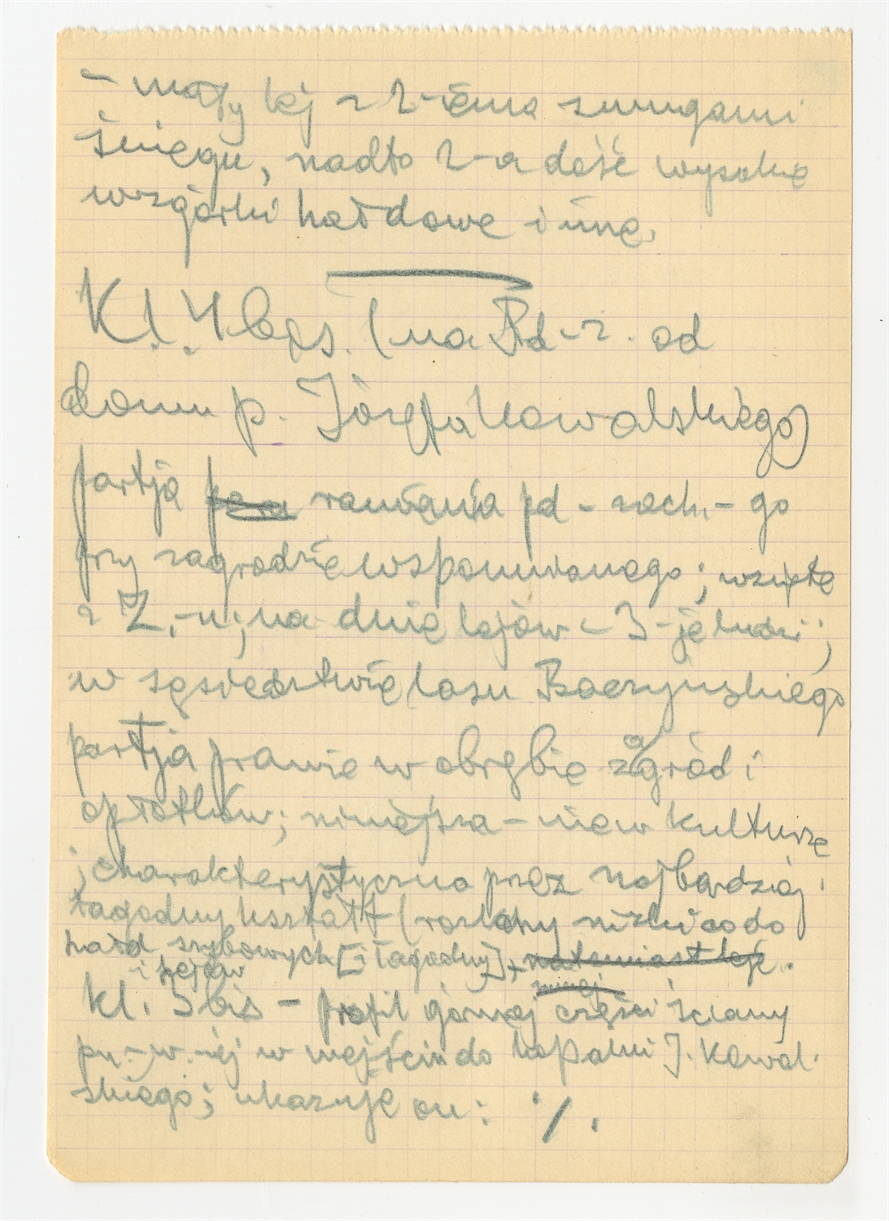 – mały lej z 2-iema smugami
śniegu, nadto 2-a dość wysokie
wzgórki hałdowe i inne.
Kl. 4 bis. (na Pd-z. od
domu p. Józefa Kowalskiego)
partja równania pd-zach.-go
przy zagrodzie wspomnianego; wzięte
z Z.-u; na dnie lejów – 3-je ludzi;
w sąsiedztwie lasu Baczyńskiego
partja prawie w obrębie zagród i
opłotków; niniejsza – nie w kulturze
; charakterystyczna przez najbardziej
łagodny kształt (rozlany niski co do
hałd szybowych [i łagodny],
i lejów
kl. 5 bis – profil górnej części ściany
pn.-w.-ej w wejściu do kopalni J. Kowal-
skiego; ukazuje on: ·/.